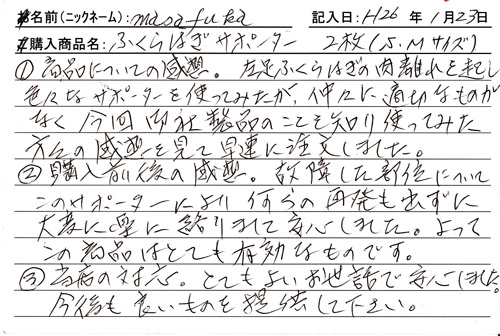 お名前(ニックネーム): masafuka 記入日: H26 年 1月23日
ご購入商品名: ふくらはぎサポーター 2枚(S.Mサイズ)
①商品についての感想。左足ふくらはぎの肉離れを起し
色々なサポーターを使ってみたが、仲々に適切なものが
なく今回御社製品のことを知り使ってみた
方々の感想を見て早速に注文しました。
②購入前後の感想。故障した部位について
このサポーターにより何らの再発も出ずに
大変に楽に終りまして安心しました。よって
この商品はとても有効なものです。
③当店の対応。とてもよいお世話で安心しました。
今後も良いものを提供して下さい。